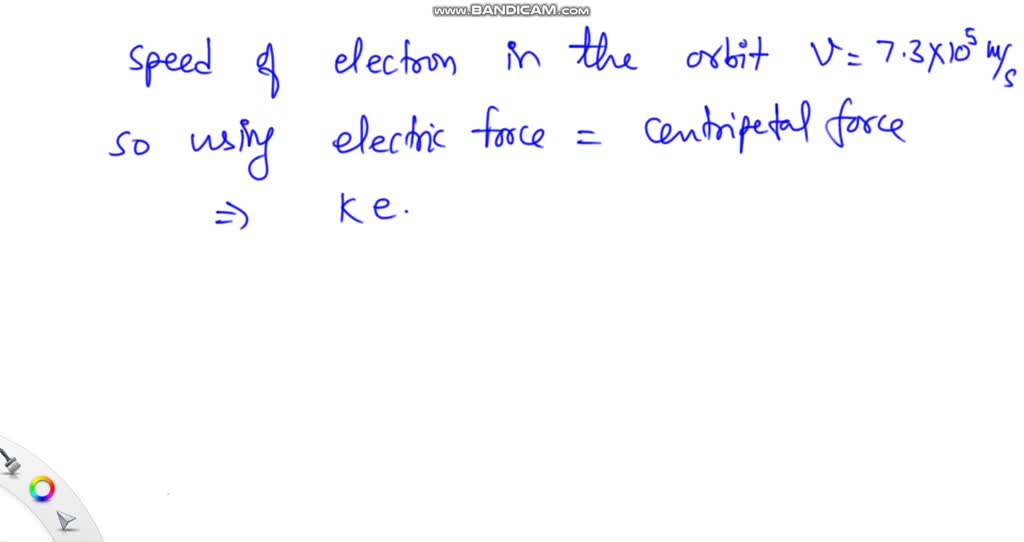 www.BANDICAM.com
speed of electron in the orbit v = 7.3×10⁵ m/s
so using electric force = centripetal force
⇒ k e.